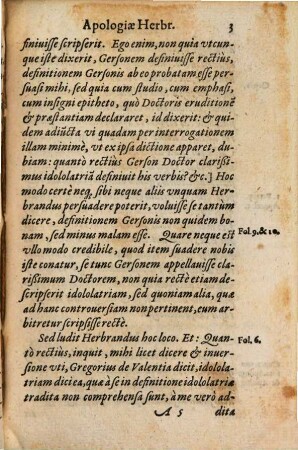 Apologiæ Herbr. 3
finiuisse scripserit. Ego enim, non quia vtcun-
que iste dixerit, Gersonem definiuisse rectiùs,
definitionem Gersonis ab eo probatam esse per-
suasi mihi, sed quia cum studio, cum emphasi,
cum insigni epitheto, quo Doctoris eruditionē
& præstantiam declararet, id dixerit: & qui-
dem adiūcta vi quadam per interrogationem
illam minimè, vt ex ipsa dictione apparet, du-
biam: quantò rectius Gerson Doctor clarissi-
mus idololatriā definiuit his verbis? &c.] Hoc
modo certè neq; sibi neque aliis vnquam Her-
brandus persuadere poterit, voluisse se tantùm
dicere, definitionem Gersonis non quidem bo-
nam, sed minus malam esse. Quare neque est
vllo modo credibile, quod item suadere nobis
iste conatur, se tunc Gersonem appellauisse cla-
rissimum Doctorem, non quia rectè etiam de-
scripserit idololatriam, sed quoniam alia, quæ
ad hanc controuersiam non pertinent, eum ar-
bitretur scripsisse rectè.
Fol. 9. & 10.
Sed ludit Herbrandus hoc loco. Et: Quan-
tò rectius, inquit, mihi licet dicere & inuer-
sione vti, Gregorius de Valentia dicit, idolola-
triam dici ea, quæ à se in definitione idololatriæ
tradita non comprehensa sunt, à me verò ad-
Fol. 6.
A 5 dita